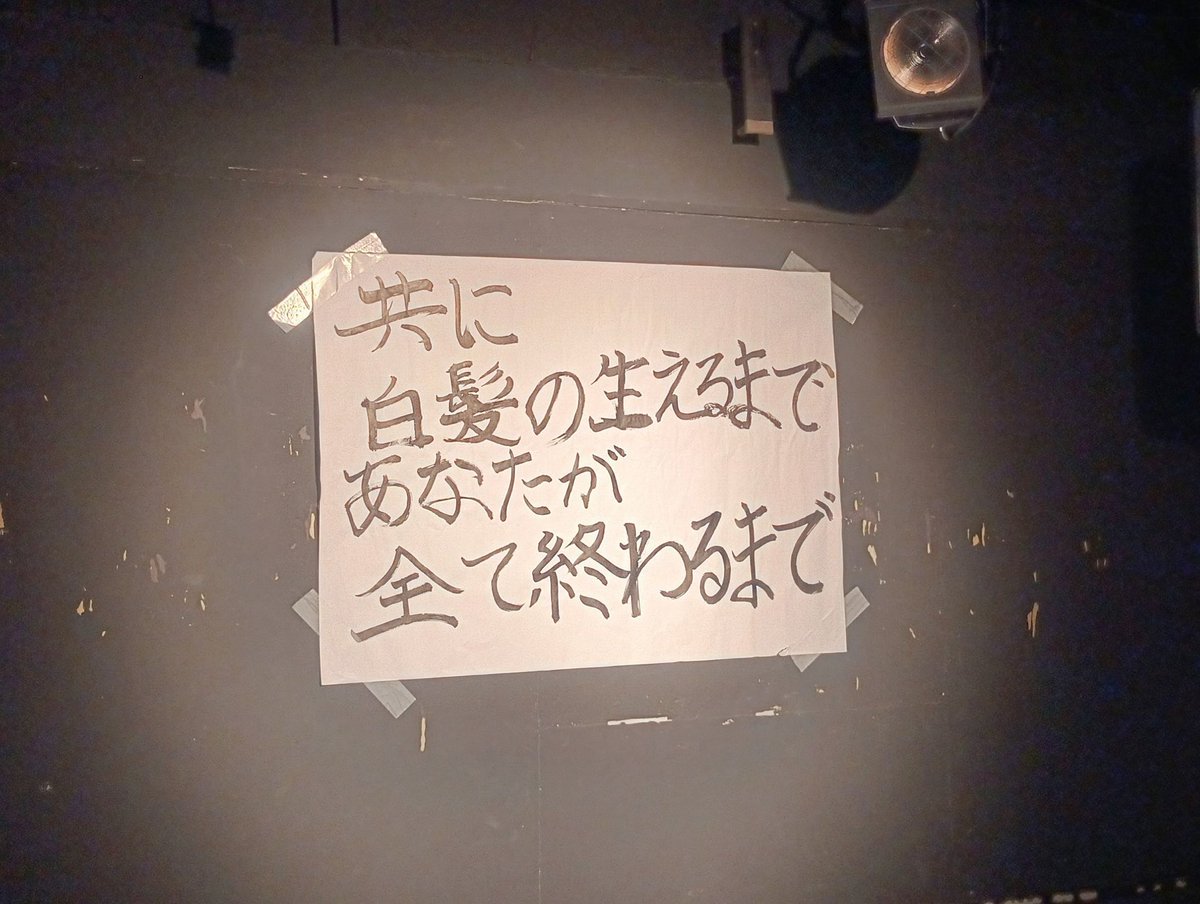 共に
白髪の生えるまで
あなたが
全て終わるまで